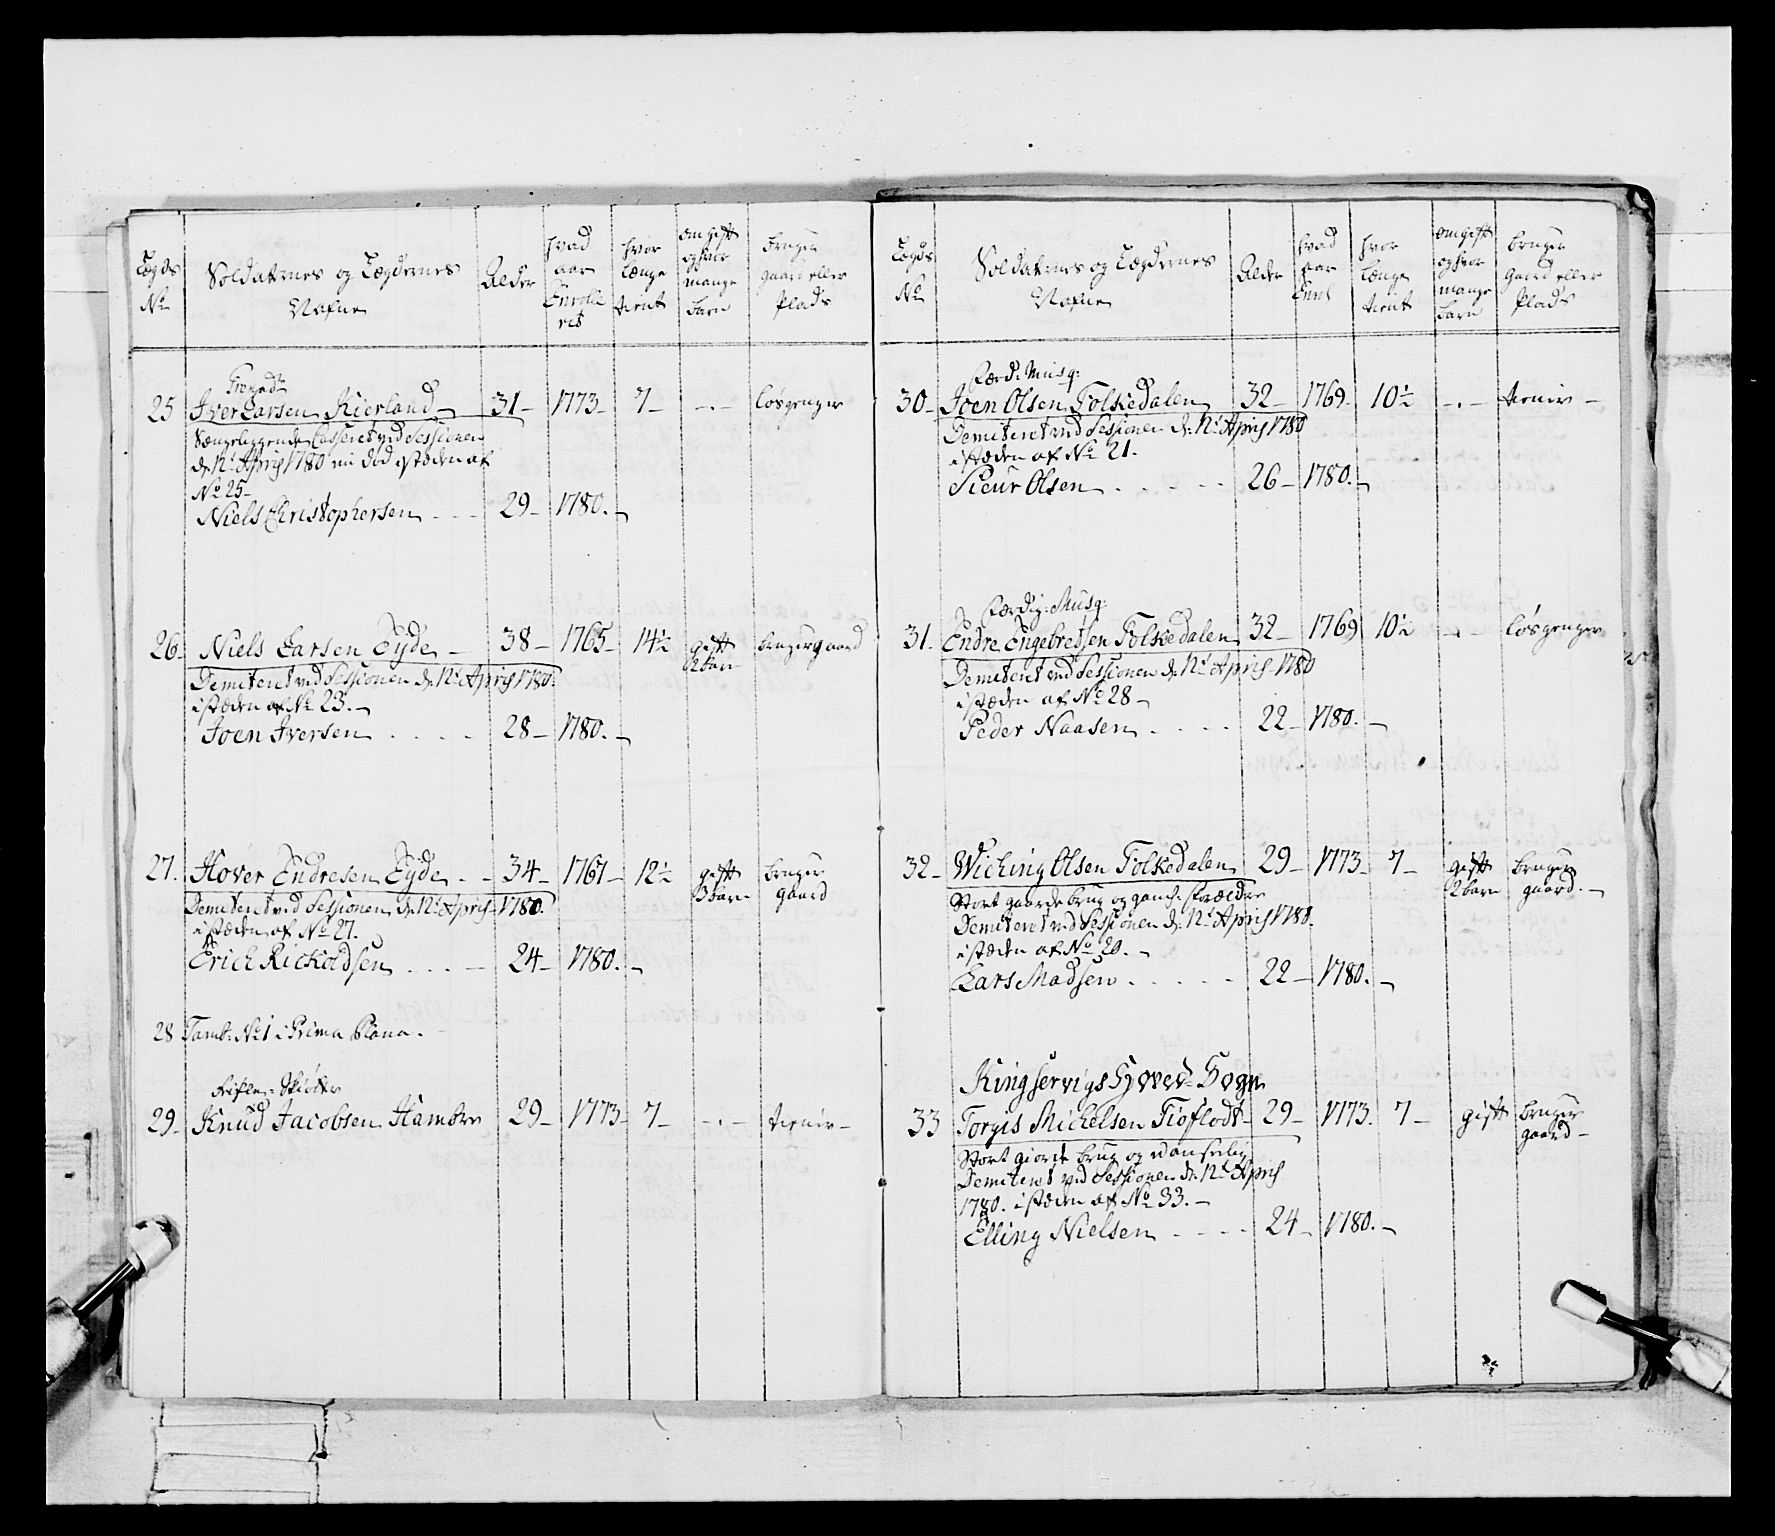 Lægds No
Soldaternes og Lægdernes Nafne
Alder
hvad aar Enrolleret
hvor længe tient
om gift og hvor mange barn
bruger gaard eller Plads
Grenad:
25 Iver Larsen Kierland 31 – 1773 – 7 – – . – løsgenger
Sængeliggende Casseret ved Sessionen
d: 12te Aprill 1780 nu død istæden af
No 25 –
Niels Christophersen . . . 29 – 1780. –
26. Niels Larsen Eyde – 38 – 1765 – 14½ gift 2 barn bruger gaard
Demiteret ved Sessionen d: 12te Aprill 1780.
istæden af No 23. –
Joen Iversen . . . . 28 – 1780. –
27. Hover Endresen Eyde . – 34 – 1767 – 12½ gift 3 barn bruger gaard
Demiteret ved Sessionen d: 12te Aprill 1780.
istæden af No 27.
Erich Rickoldsen . . . – 24 – 1780. –
28 Tamb: No 1 i Prima Plana.
29. Knud Jacobsen Hambre 29 – 1773 – 7 – – . – tiener –
Lægds No
Soldaternes og Lægdernes Nafne
Alder
hvad aar Enrol
hvor længe tient
om gift og hvor mange barn
bruger Gaard eller Plads
Færd: Musq:
30 – Joen Olsen Folkedalen 32 – 1769. 10½ – . – tiener –
Demiteret ved Sessionen d: 12te Aprill 1780
istæden af No 21.
Sieur Olsen . . . . . 26 – 1780. –
Færdig: Musq:
31. Endre Engebredsen Folkedalen 32 – 1769 10½ – . – løsgenger
Demiteret ved Sessionen d: 12te Aprill 1780
istæden af No 28 –
Peder Naasen . . . . 22 – 1780. –
32 – Wiching Olsen Folkedalen 29 – 1773 – 7 – gift 2 barn bruger gaard. –
Stort gaarde brug og gamle Forældre
Demiteret ved Sessionen d: 12te Aprill 1780.
istæden af No 20. –
Lars Madsen . . . . . 22 – 1780. –
Kingservigs Hoved Sogn
33 Torgis Michelsen Tioflodt – 29 – 1773. 7 – gift bruger gaard –
Stort giorde brug og uanseelig
Demiteret ved Sessionen d: 12te Aprill
1780. istæden af No 33. –
Elling Nielsen . . . . 24 – 1780. –